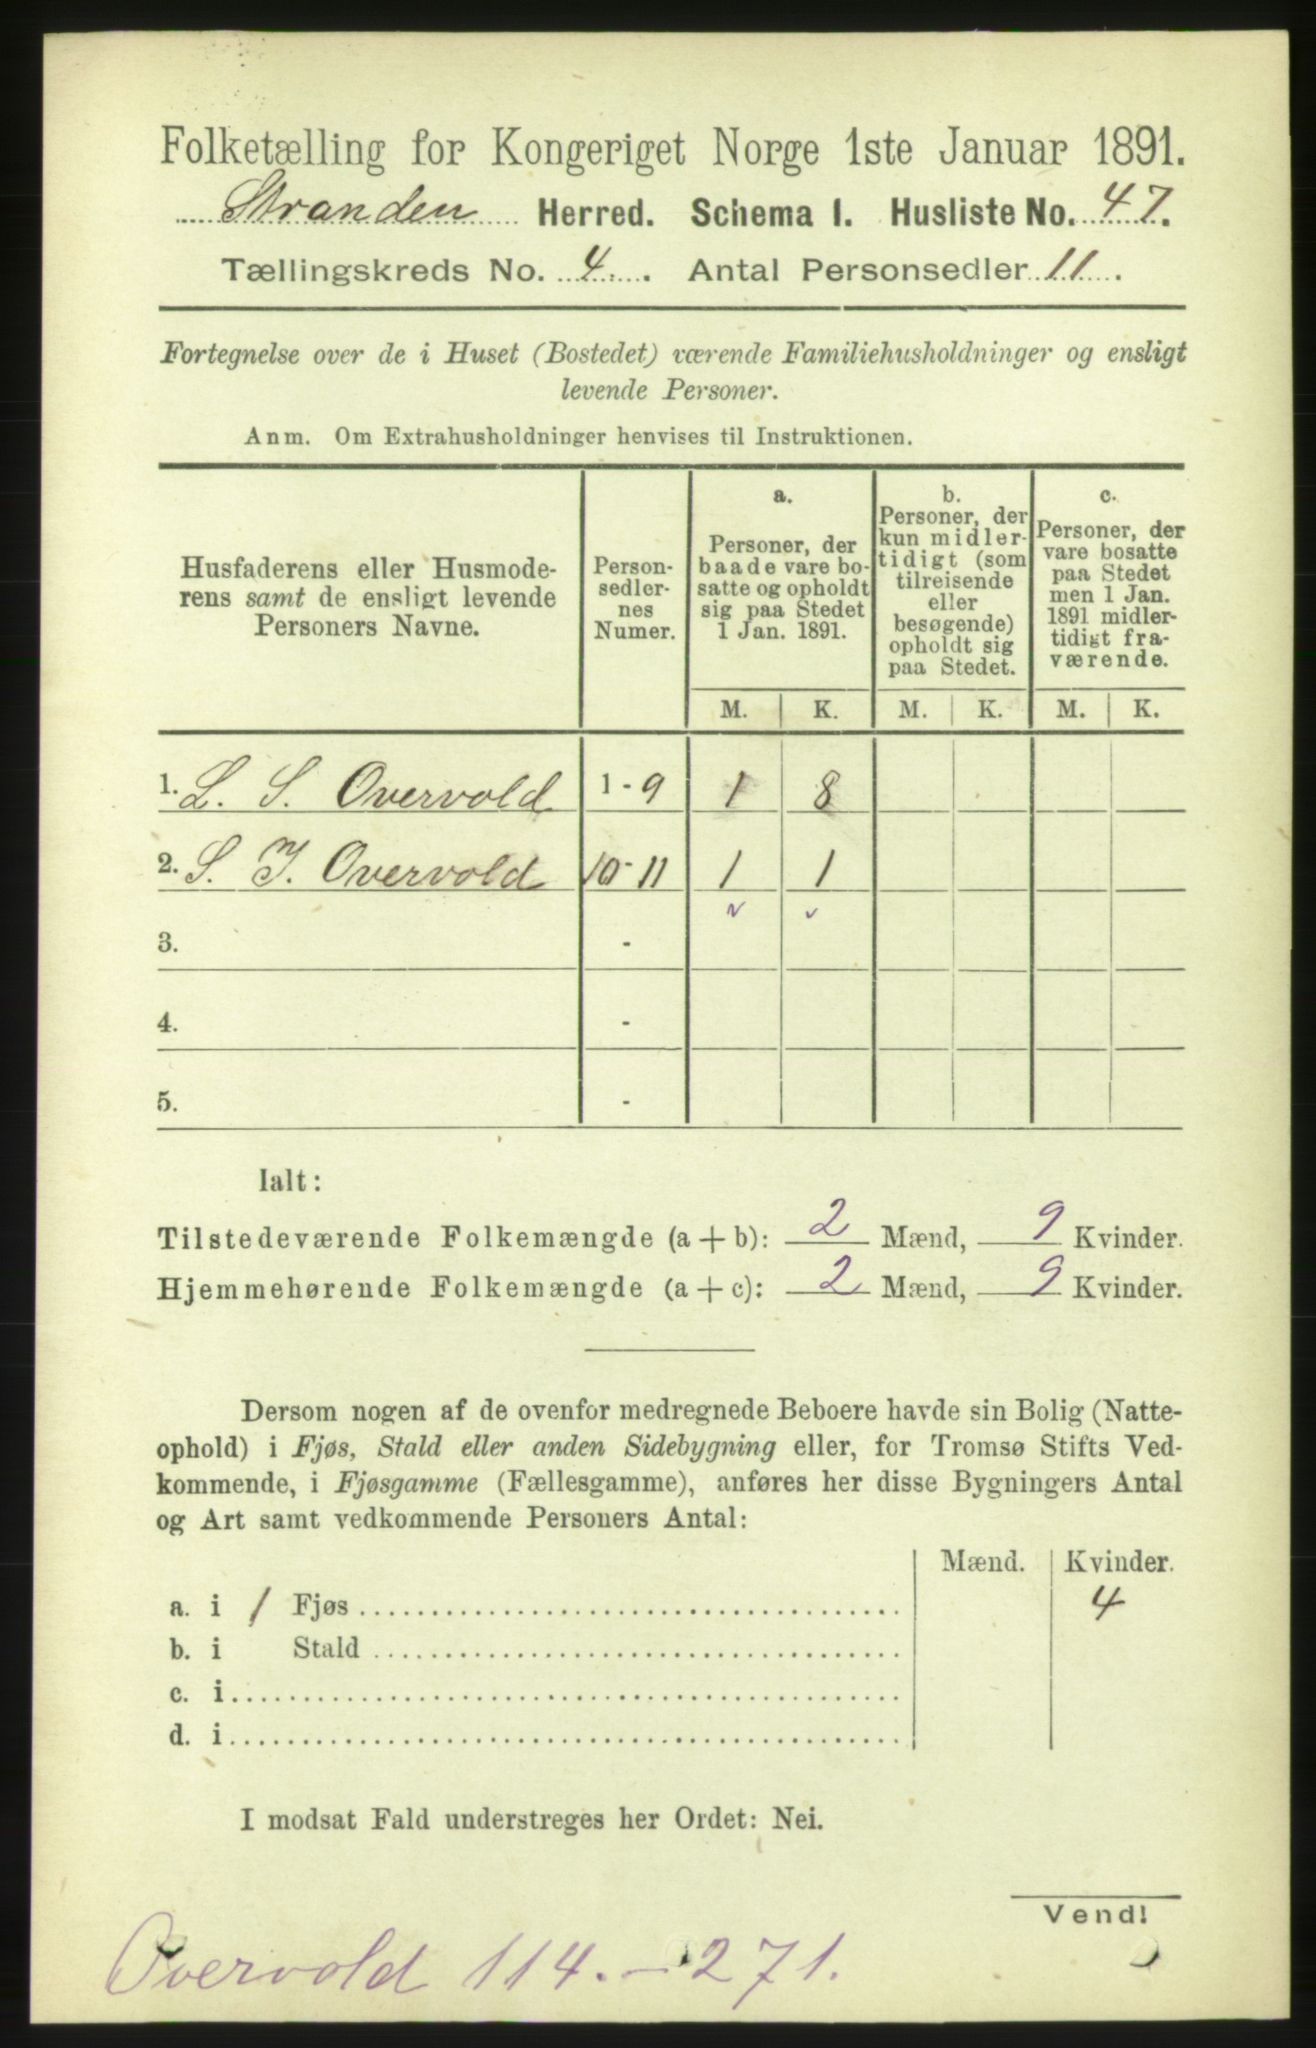 Folketælling for Kongeriget Norge 1ste Januar 1891.
Stranden Herred. Schema 1. Husliste No. 47.
Tællingskreds No. 4. Antal Personsedler 11.
Fortegnelse over de i Huset (Bostedet) værende Familiehusholdninger og ensligt
levende Personer.
Anm. Om Extrahusholdninger henvises til Instruktionen.
Husfaderens eller Husmode-
rens samt de ensligt levende
Personers Navne.
Person-
sedler-
nes
Numer.
a.
Personer, der
baade vare bo-
satte og opholdt
sig paa Stedet
1 Jan. 1891.
b.
Personer, der
kun midler-
tidigt (som
tilreisende
eller
besøgende)
opholdt sig
paa Stedet.
c.
Personer, der
vare bosatte
paa Stedet
men 1 Jan.
1891 midler-
tidigt fra-
værende.
M. K. M. K. M. K.
1. L. S. Overvold 1 - 9 1 8
2. S. J. Overvold 10 - 11 1 1
3. -
4. -
5. -
Ialt:
Tilstedeværende Folkemængde (a + b): 2 Mænd, 9 Kvinder.
Hjemmehørende Folkemængde (a + c): 2 Mænd, 9 Kvinder.
Dersom nogen af de ovenfor medregnede Beboere havde sin Bolig (Natte-
ophold) i Fjøs, Stald eller anden Sidebygning eller, for Tromsø Stifts Ved-
kommende, i Fjøsgamme (Fællesgamme), anføres her disse Bygningers Antal
og Art samt vedkommende Personers Antal:
Mænd. Kvinder.
a. i 1 Fjøs 4
b. i Stald
c. i
d. i
I modsat Fald understreges her Ordet: Nei.
Vend!
Overvold 114. - 271.